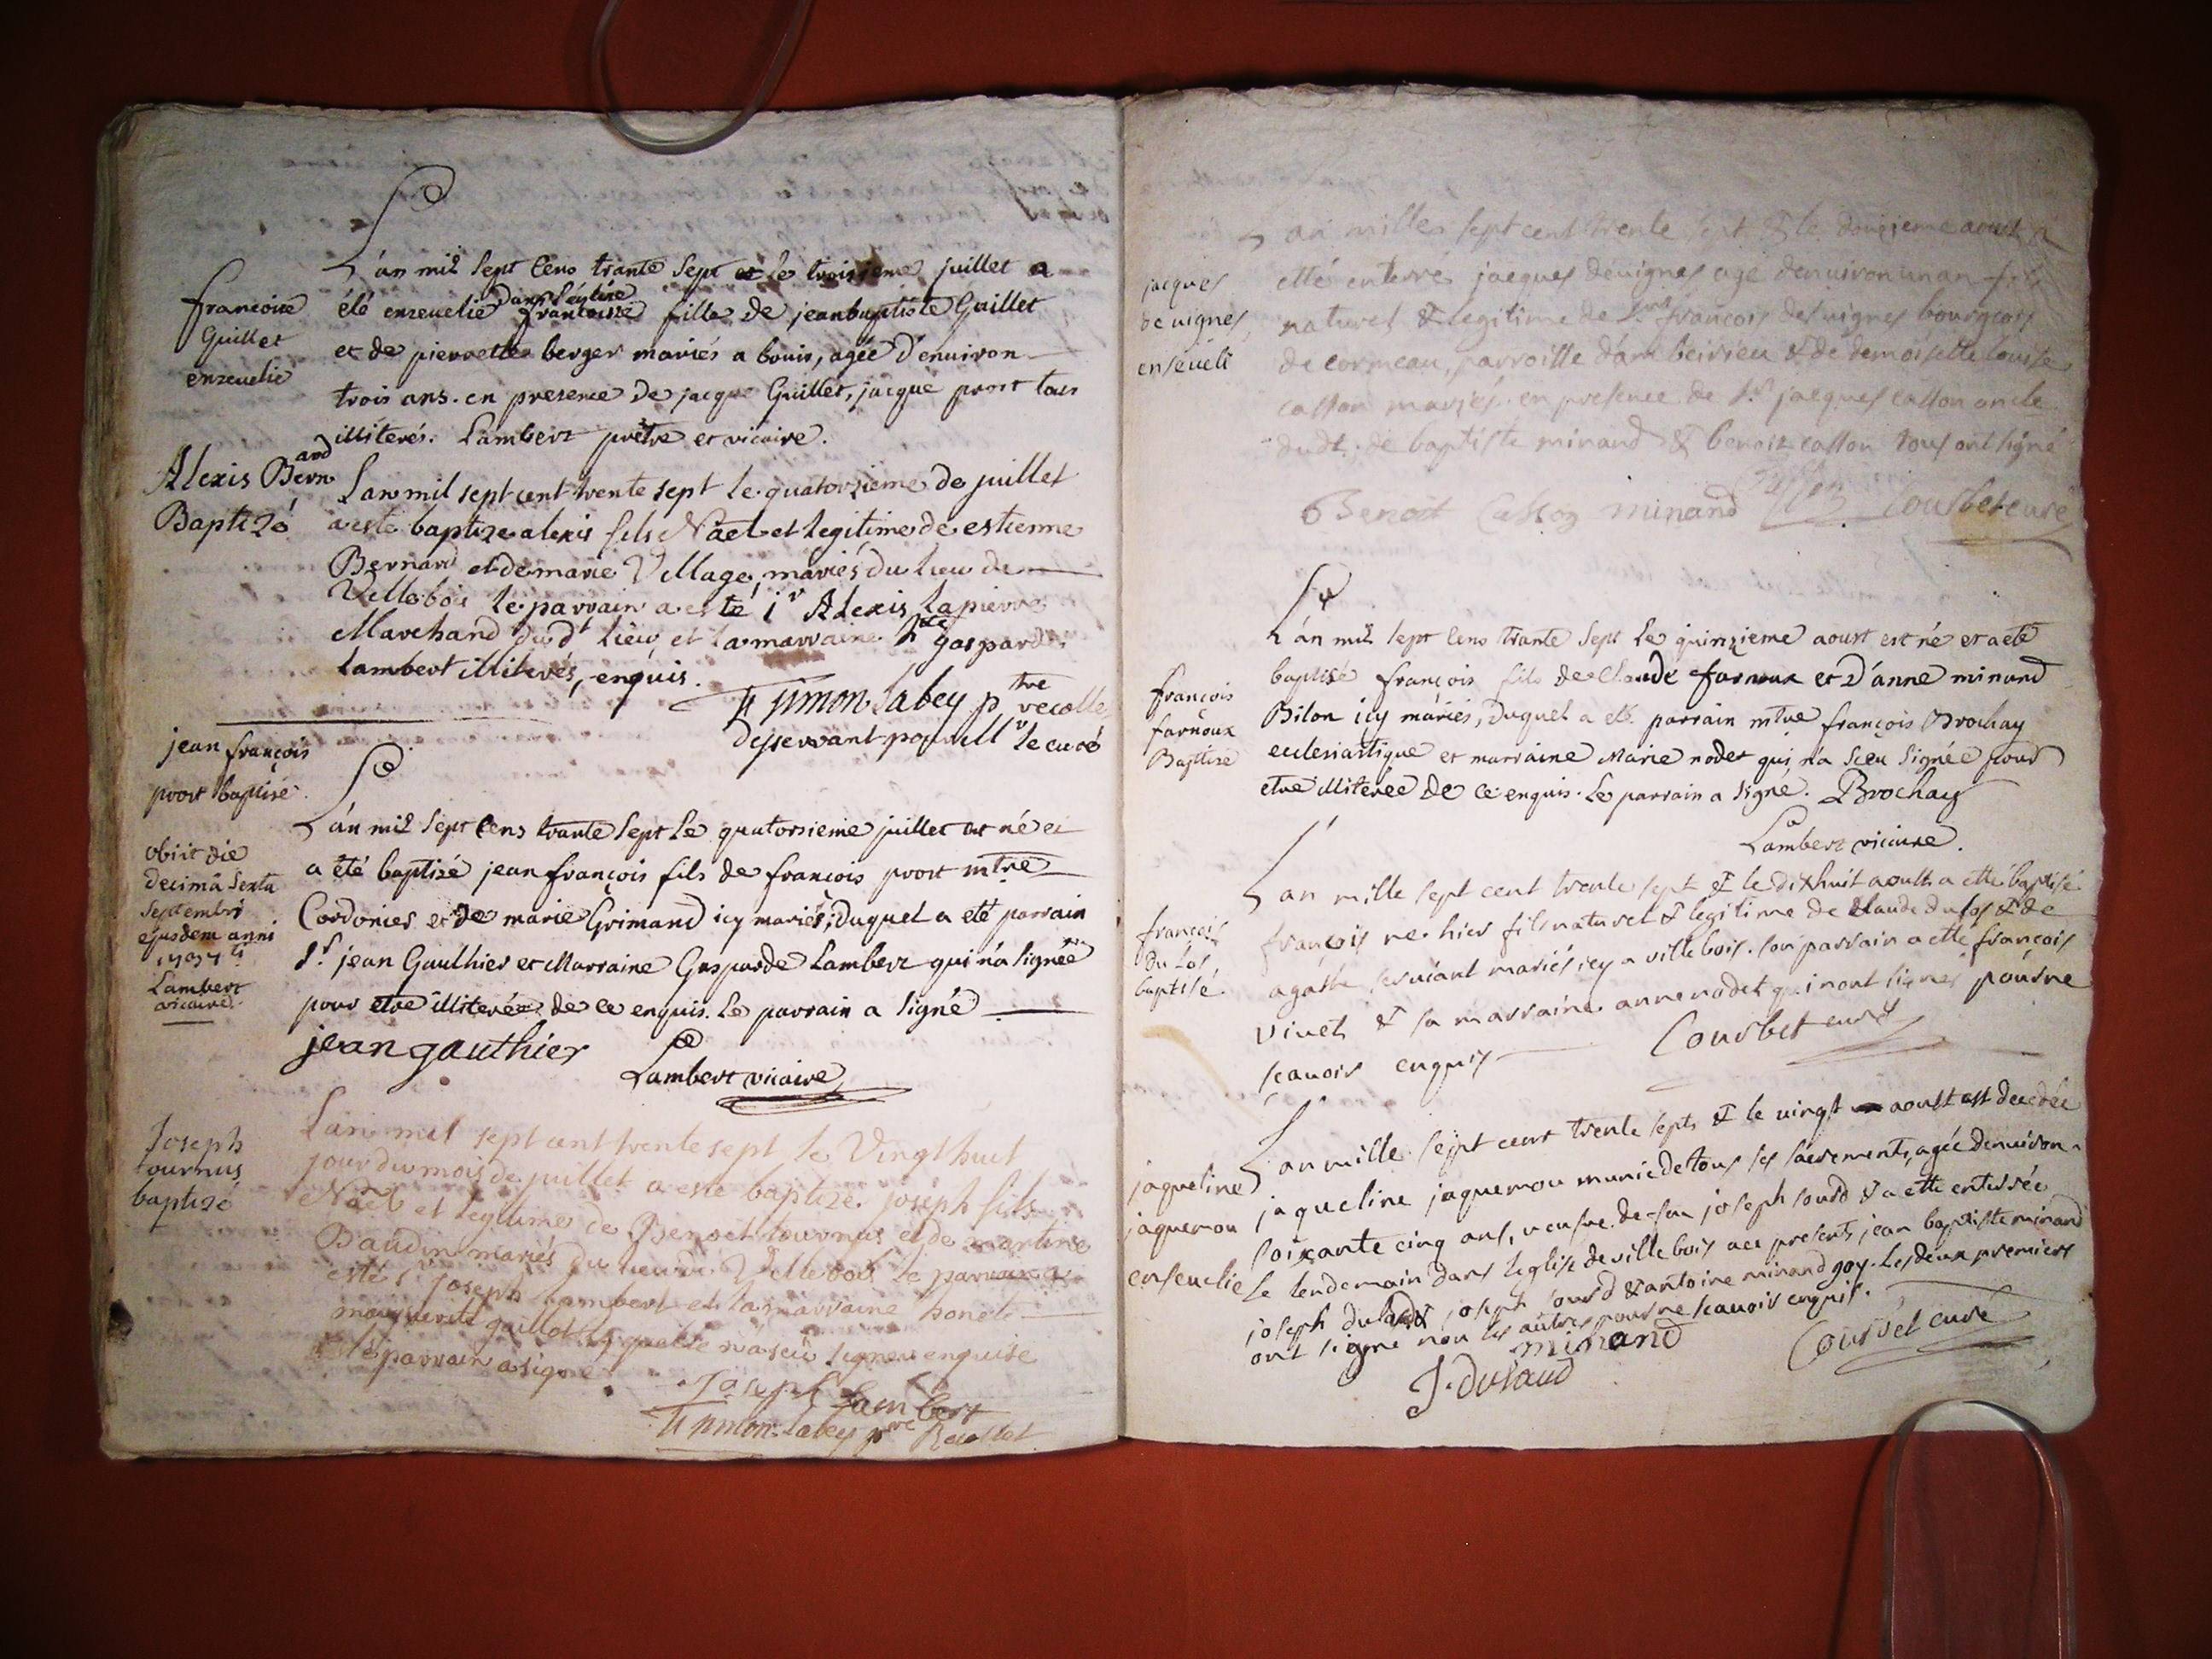 francoise
Guillet
enseuelie
L'an mil sept cens trante sept et le troisieme juillet a
été enseuelie dans l'église francoise fille de jeanbaptiste Guillet
et de pierrette berger mariés a bouis, agée d'enuiron
trois ans. en presence de jacque Guillet, jacque prost tous
illiterés. Lambert prêtre et vicaire.
Alexis Bernard
Baptizé
Lan mil sept cent trente sept le quatorzieme de juillet
a esté baptize alexis fils Nael et legitime de estienne
Bernard et de marie Village, mariés du lieu de
Vellebois le parrain a esté sr Alexis lapierre
Marchand dud't lieu, et la marraine gasparde
lambert illiterés, enquis.
simon labey ptre recolle
desservant pour le curé
jean françois
prost baptisé
obiit die
decimâ sexta
septembri
ejusdem anni
1737
Lambert
vicaire.
L'an mil sept cens trante sept le quatorsieme juillet est né et
a été baptisé jean françois fils de françois prost mtre
Cordonier et de marie Grimand icy mariés; duquel a eté parrain
sr. jean Gaulhier et Marraine Gasparde Lambert qui n'a signée
pour etre illiterée de ce enquis. Le parrain a signé
jean gauthier
Lambert vicaire
Joseph
tournus
baptizé
Lan mil sept cent trente sept le Vingt huit
jour du mois de juillet a esté baptize joseph fils
Nael et legitime de Benoet tournus et de martine
Baudin mariés du lieu de Vellebois le parrain a
esté sr joseph lambert et la marraine honete
marguerite guillot laquelle n'a sceu signer enquise
et le parrain a signe
Joseph Lambert
simon labey ptre Recollet
jacques
deuignes
enséueli
L an mille sept cent trente sept & le douzieme aoust a
etté enterré jacques deuignes agé denuiron un an fils
naturel & legitime de sieur françois desuignes bourgeois
de cormeau, parroisse d'ambeirieu & de demoiselle louise
casson mariés. en presence de sr jacques casson oncle
dudt. de baptiste minand & benoit casson tous ont signé
Benoit Casson minand Casson Courbet curé
françois
farnoux
Baptisé
L'an mil sept cens trante sept le quinzieme aoust est né et a eté
baptisé françois fils de Claude farnoux et d'anne minand
Bilon icy mariés, duquel a eté parrain mtre françois Brochay
eclesiastique et marraine Marie nodet qui n'a sceu signée pour
etre illiterée de ce enquis. Le parrain a signé. Brochay
Lambert vicaire.
françois
du Los
baptisé
L an mille sept cent trente sept & le dixhuit aoust a etté baptisé
françois ne hier fils naturel & legitime de Claude dulos & de
agathe seruiant mariés icy a ville bois. son parrain a etté françois
viuet & sa marraine anne nodet qui n'ont signés pour ne
scauoir enquis
Courbet curé
jaqueline
jaquemou
enseuelie
L an mille sept cent trente sept & le uingt aoust est decedée
jaqueline jaquemou munie de tous ses sacrements, agée denuiron
soixante cinq ans, ueusve de feu joseph sourd & a etté enterrée
le lendemain dans l'eglise de ville bois aux presents jean baptiste minand
joseph dulaud joseph sourd & antoine minand goy. les deux premiers
ont signe non les autres pour ne scauoir enquis.
minand
J. dulaud
Courbet curé